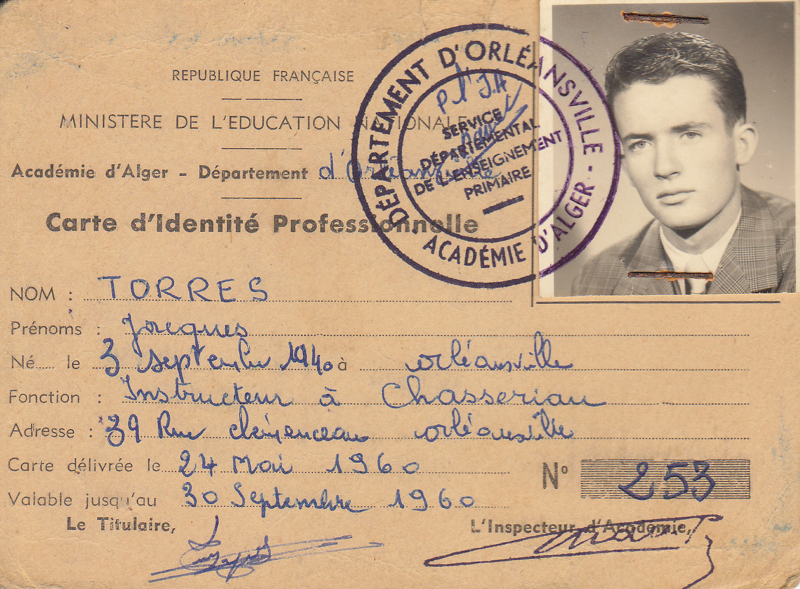 REPUBLIQUE FRANÇAISE
MINISTERE DE L'EDUCATION NATIONALE
Académie d'Alger - Département d'Orléansville
Carte d'Identité Professionnelle
DÉPARTEMENT D'ORLÉANSVILLE -
ACADÉMIE D'ALGER -
P. l'I.A
SERVICE
DÉPARTEMENTAL
DE L'ENSEIGNEMENT
PRIMAIRE
NOM : TORRES
Prénoms : Jacques
Né le 3 septembre 1940 à orléansville
Fonction : Instructeur à Chasseriau
Adresse : 39 Rue clémenceau orléansville
Carte délivrée le 24 Mai 1960
N° 253
Valable jusqu'au 30 Septembre 1960
Le Titulaire, L'Inspecteur d'Académie,